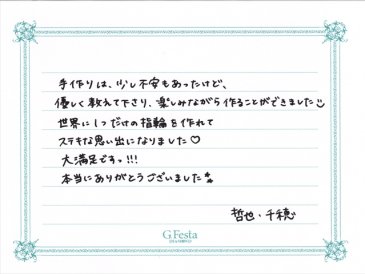 手作りは、少し不安もあったけど、
優しく教えて下さり、楽しみながら作ることができました☺
世界に1つだけの指輪を作れて
ステキな思い出になりました♡
大満足ですッ!!!
本当にありがとうございました
哲也・千穂
G.Festa